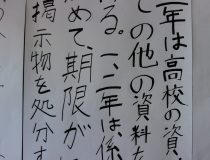 年は高校の資
ての他の資料を
る。一、二年は係
めて、期限が
掲示物を処分す